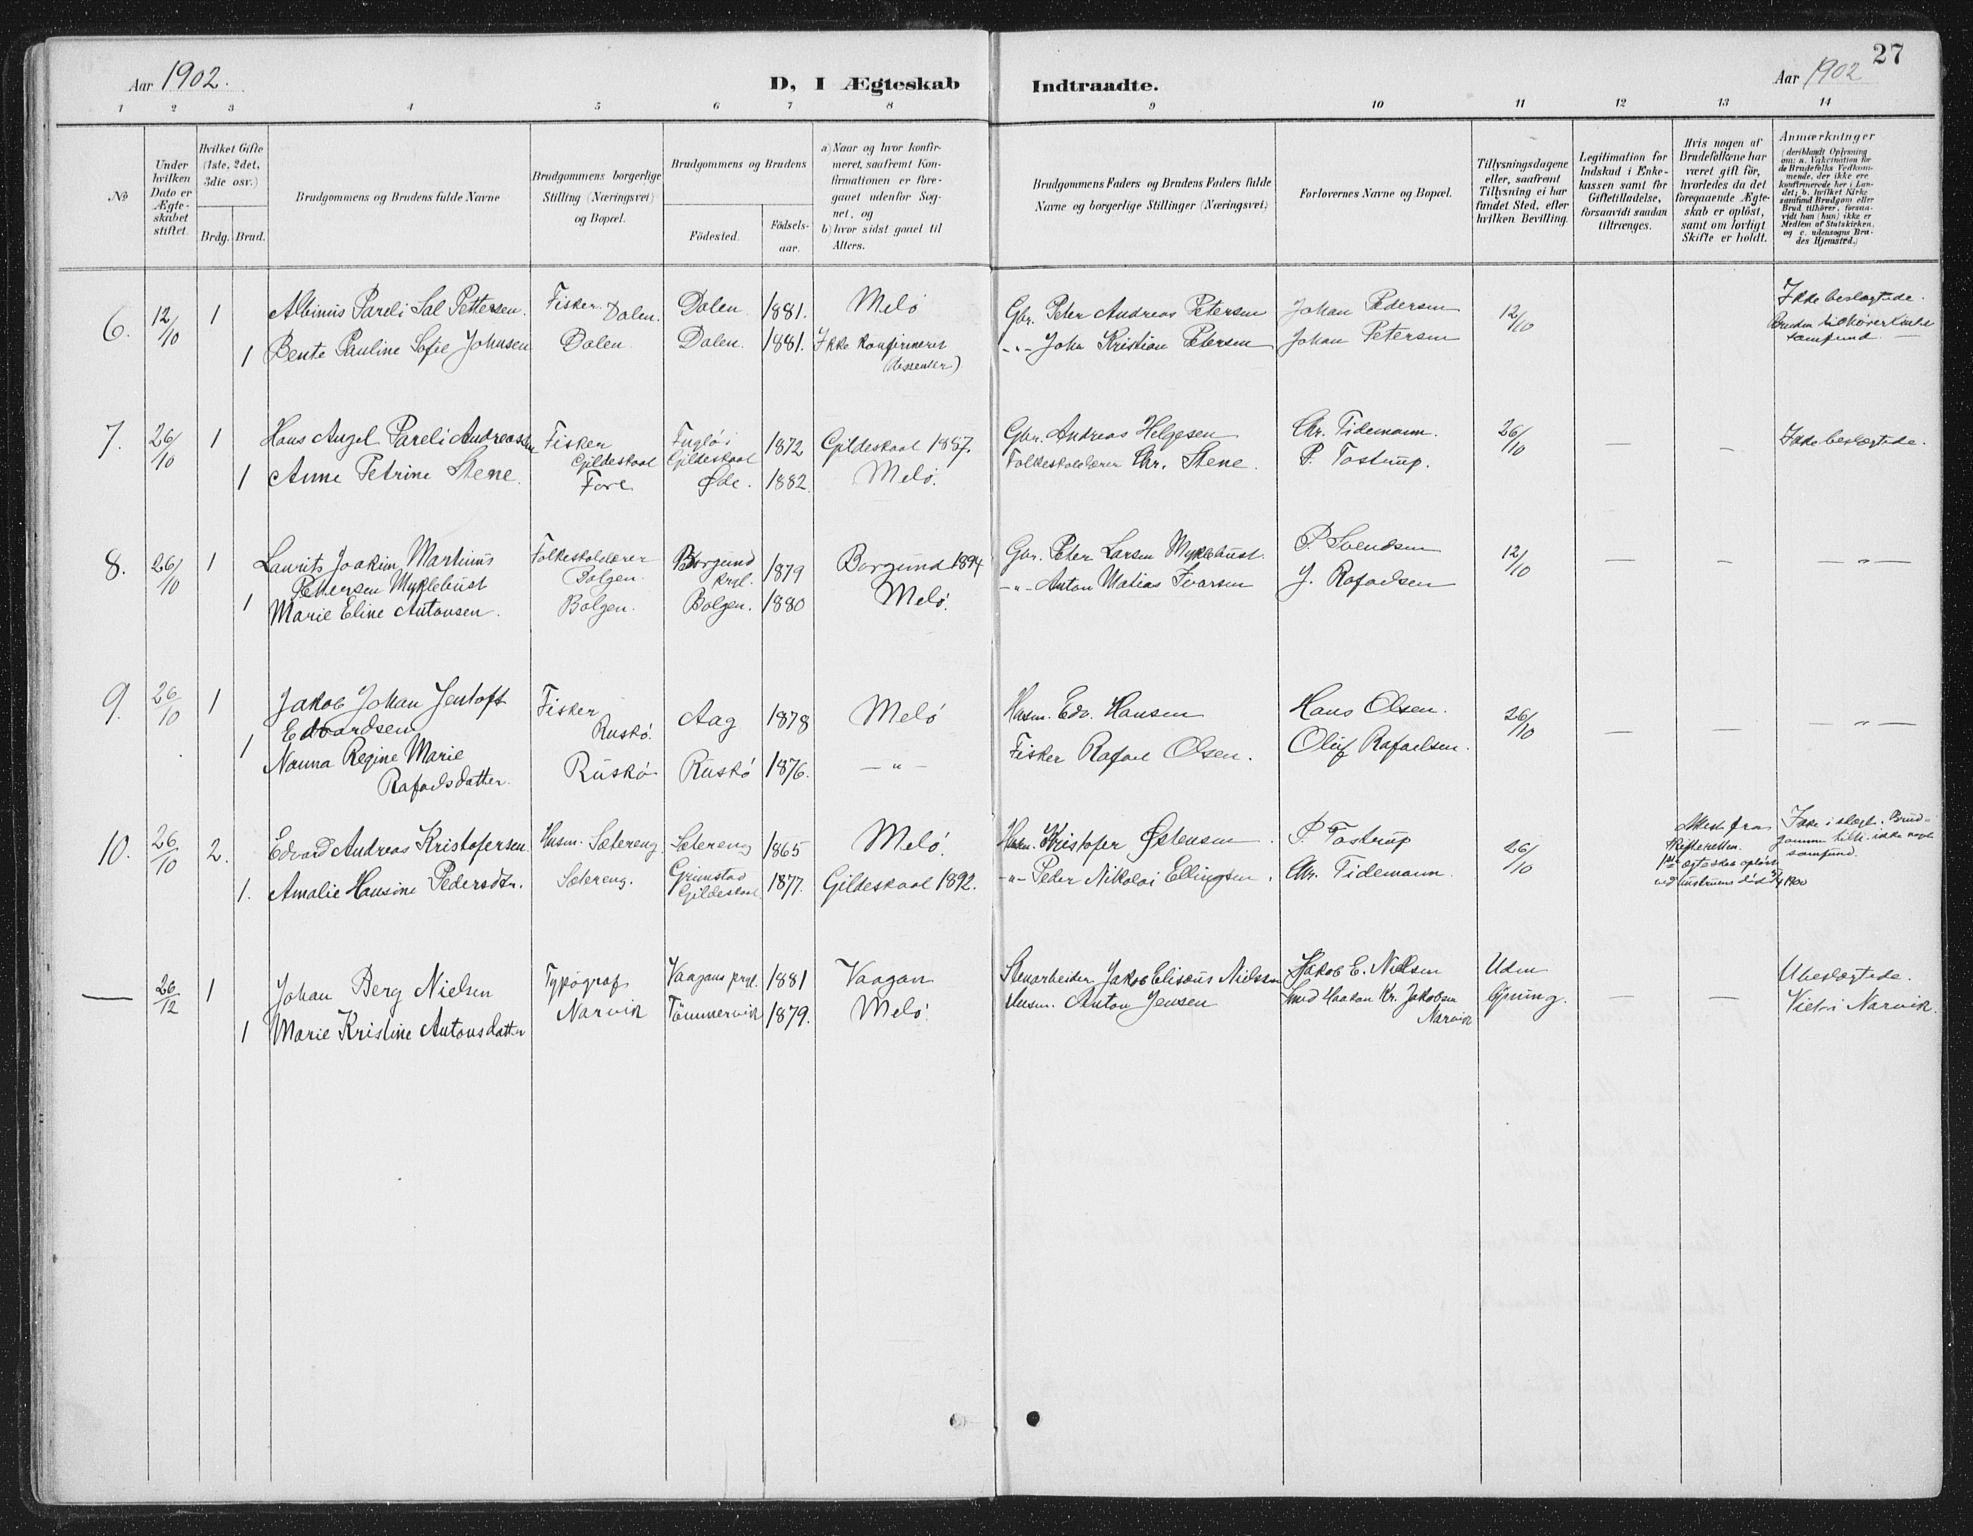 27
Aar 1902.
D, I Ægteskab Indtraadte.
Aar 1902
1 2 3 4 5 6 7 8 9 10 11 12 13 14
№
Under hvilken Dato er Ægteskabet stiftet.
Hvilket Gifte (1ste, 2det, 3die osv.)
Brdg. Brud.
Brudgommens og Brudens fulde Navne
Brudgommens borgerlige Stilling (Næringsvei) og Bopæl.
Brudgommens og Brudens
Födested. Födsels-aar.
a) Naar og hvor konfirmeret, saafremt Konfirmationen er foregaaet udenfor Sognet, og
b) hvor sidst gaaet til Alters.
Brudgommens Faders og Brudens Faders fulde Navne og borgerlige Stillinger (Næringsvei)
Forlovernes Navne og Bopæl.
Tillysningsdagene eller, saafremt Tillysning ei har fundet Sted, efter hvilken Bevilling.
Legitimation for Indskud i Enkekassen samt for Giftetilladelse, forsaavidt saadan tiltrænges.
Hvis nogen af Brudefolkene har været gift för, hvorledes da det foregaaende Ægteskab er oplöst, samt om lovligt Skifte er holdt.
Anmærkninger
(deriblandt Oplysning om: a. Vakcination for de Brudefolks Vedkommende, der ikke ere konfirmerede her i Landet; b. hvilket Kirkesamfund Brudgom eller Brud tilhörer, forsaavidt han (hun) ikke er Medlem af Statskirken, og c. udensogns Brudes Hjemsted.)
6. 12/10 1 Albinus Pareli Sal Pettersen. Fisker. Dalen. Dalen 1881. Melö Gbr. Peter Andreas Petersen Johan Pedersen 12/10 Ikke beslægtede.
1 Bente Pauline Sofie Johnsen Dalen. Dalen. 1881. Ikke konfirmeret -"- Johan Kristian Petersen Johan Petersen Bruden tilhörer
(dissenter) samfund.
7. 26/10 1 Hans Angel Pareli Andreassen Fisker Fuglöi 1872 Gildeskaal 1887. Gbr. Andreas Helgesen Chr. Tidemann. 26/10 — — Ikke beslægtede.
Gildeskaal Gildeskaal
1 Anne Petrine Stene. Fore Øde. 1882. Melö. Folkeskolelærer Chr. Stene. P. Tostrup.
8. 26/10 1 Laurits Joakim Martinus Folkeskolelærer Borgund 1879 Borgund 1894 Gbr. Peter Larsen Myklebust. P. Svendsen 12/10 — — — " —
Pettersen Myklebust Bolgen. prgl.
1 Marie Eline Antonsen. Bolgen. Bolgen. 1880 Melö. -"- Anton Matias Ivarsen J. Rafaelsen
9. 26/10 1 Jakob Johan Jentoft Fisker Aag 1878 Melö Husm. Edv. Hansen Hans Olsen. 26/10 — — — " —
Edvardsen Ruskö.
1 Nanna Regine Marie Ruskö Ruskö 1876. — " — Fisker Rafael Olsen. Oluf Rafaelsen.
Rafaelsdatter.
10. 26/10 2. Edvard Andreas Kristofersen Husm. Sætereng. Sætereng 1865 Melö. Husm. Kristofer Østensen. P. Tostrup 26/10 Attest fra Ikke i slægt. Brud-
skifteretten. gommen tilh. ikke noget
1ste ægteskab oplöst samfund.
ved hustruens död 1900
1. Amalie Hansine Pedersdtr. Sætereng. Grimstad Gildeskaal. 1877. Gildeskaal 1892. -"- Peder Nikolai Ellingsen. Chr. Tidemann.
— 26/12 1 Johan Berg Nielsen Typograf Vaagans prgl. 1881 Vaagan Stenarbeider Jakob Elisæus Nielsen Jakob E. Nielsen Uden — — Ubeslægtede.
1 Marie Kristine Antonsdatter Narvik Tömmervik 1879. Melö. Husm. Anton Jensen Smed Haakon Kr. Jakobsen Viet i Narvik.
Narvik